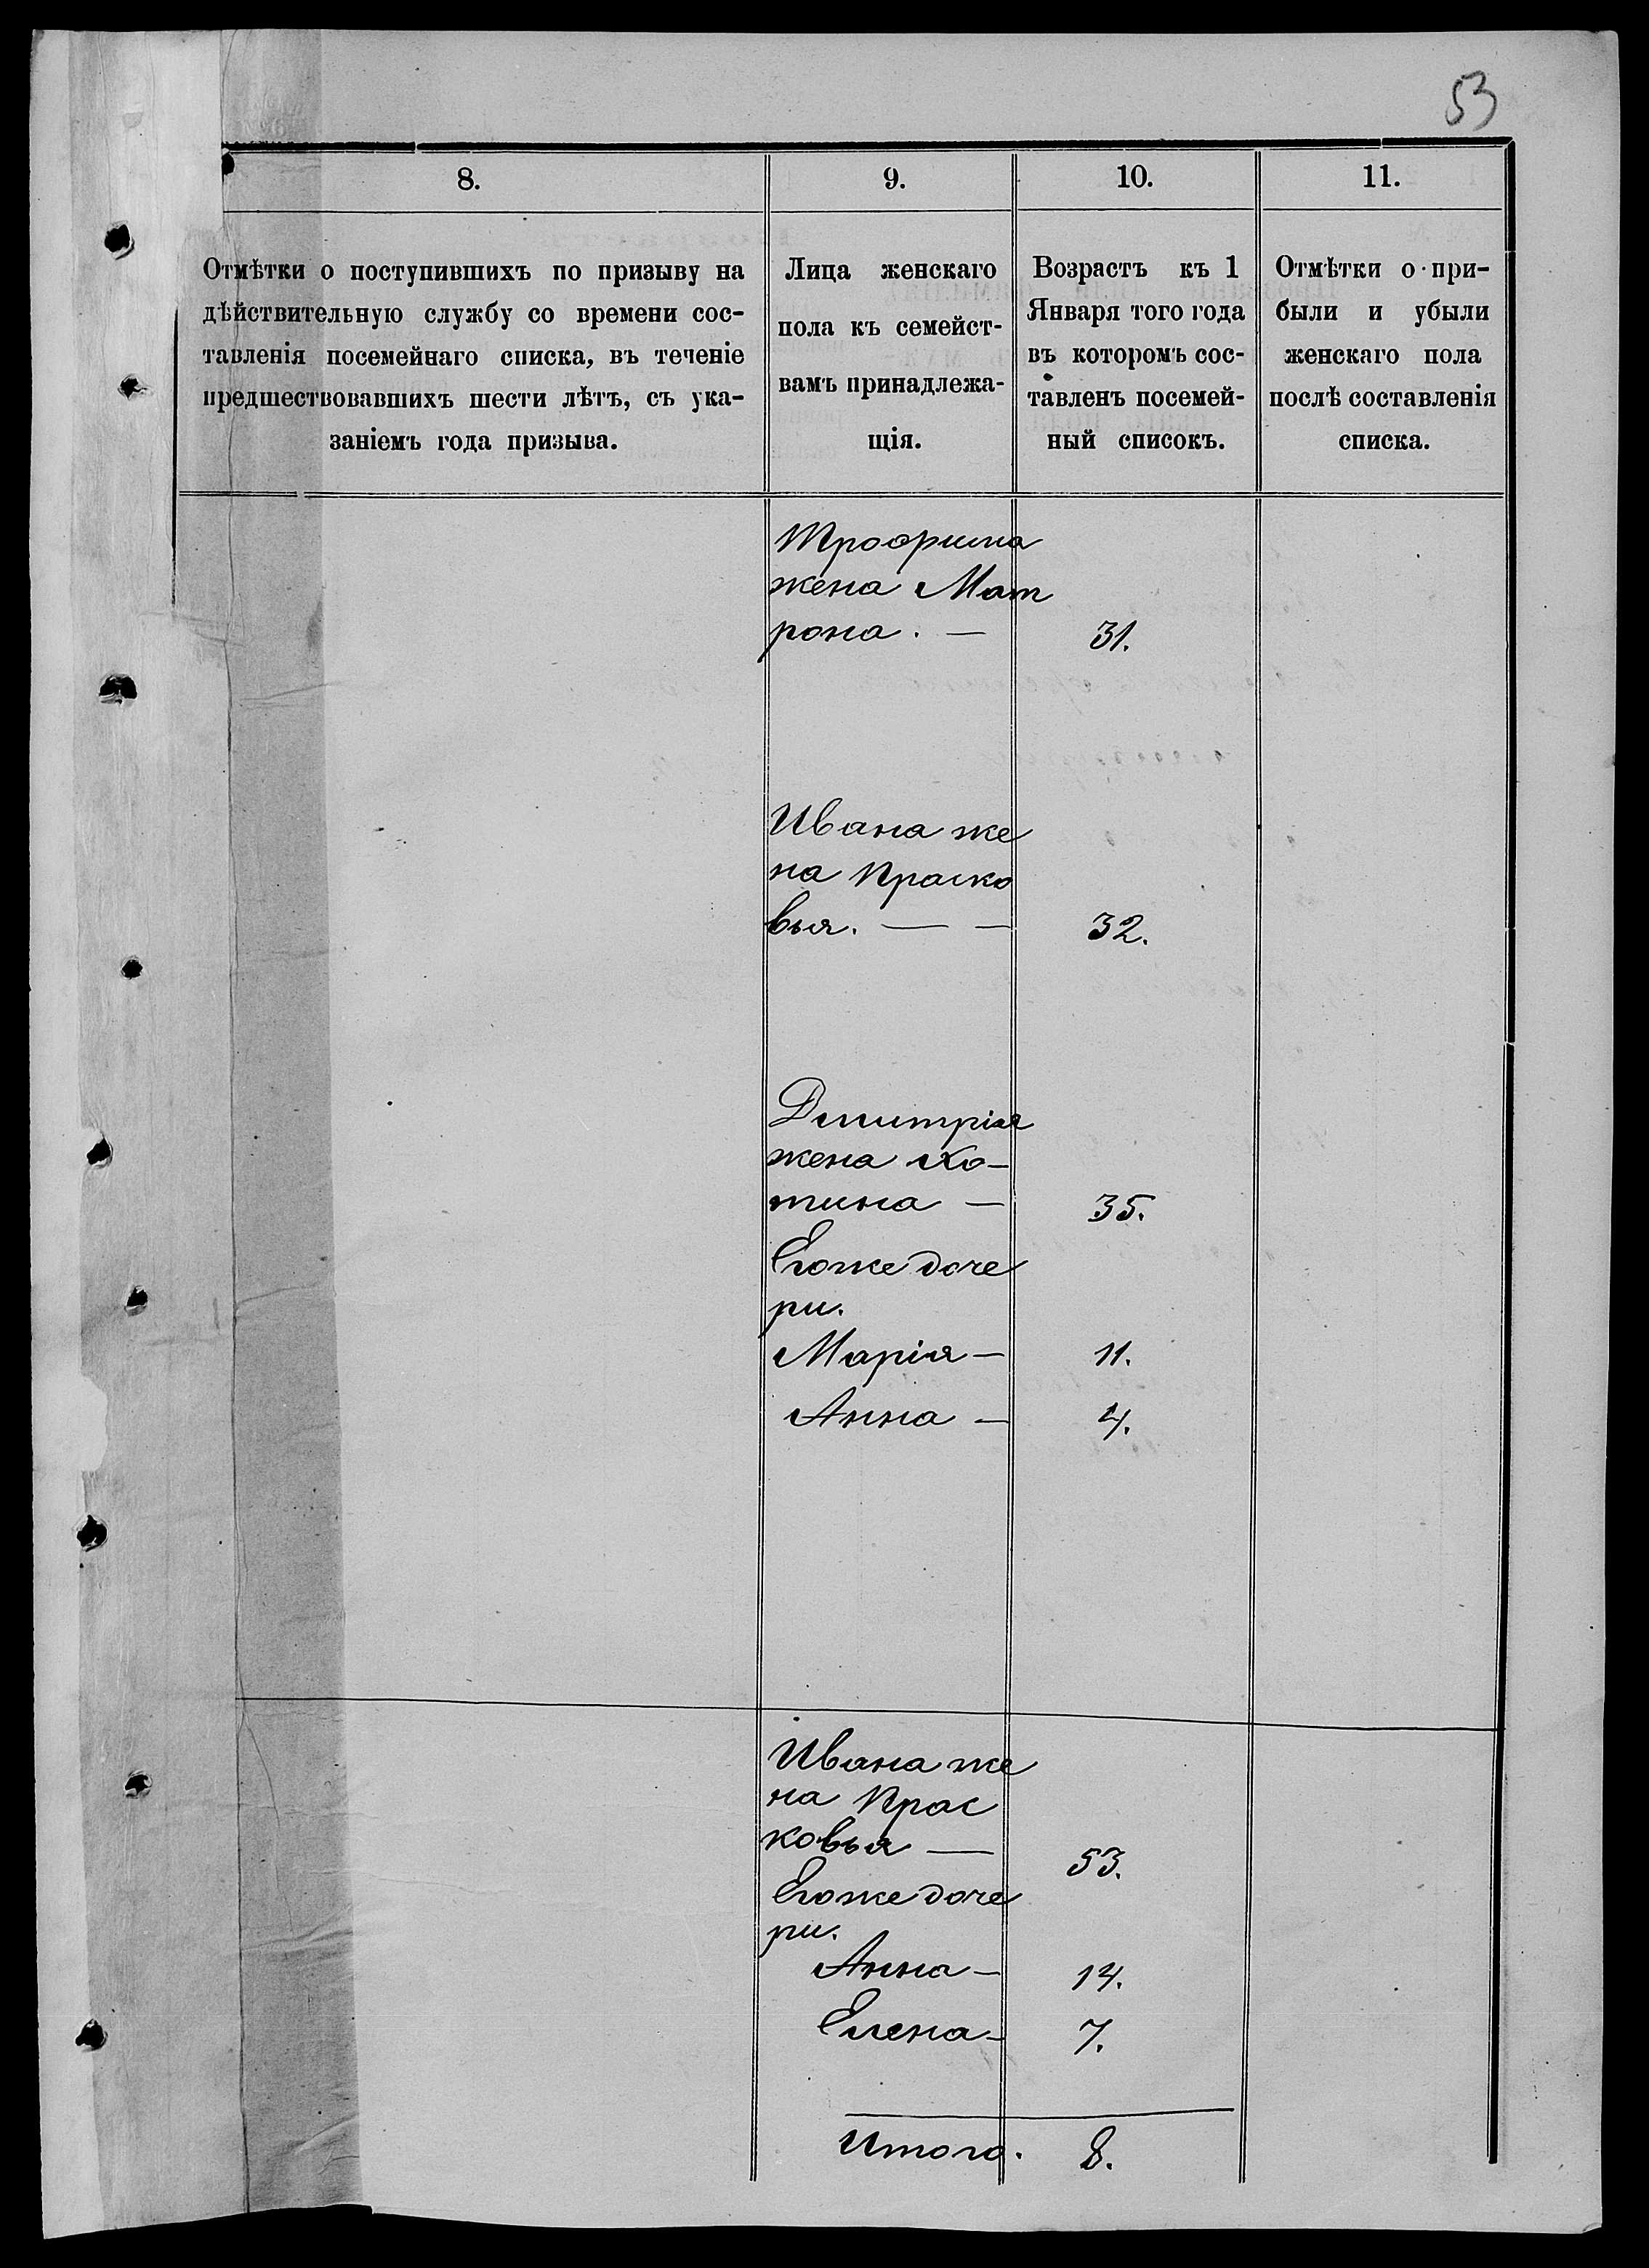 53
8.
9.
10.
11.
Отмѣтки о поступившихъ по призыву на
дѣйствительную службу со времени сос-
тавленія посемейнаго списка, въ теченіе
предшествовавшихъ шести лѣтъ, съ ука-
заніемъ года призыва.
Лица женскаго
пола къ семейст-
вамъ принадлежа-
щія.
Возрастъ къ 1
Января того года
въ которомъ сос-
тавленъ посемей-
ный списокъ.
Отмѣтки о при-
были и убыли
женскаго пола
послѣ составленія
списка.
Трофима
жена Мат
рона. — 31.
Ивана же
на Праско
вья. — — 32.
Дмитрія
жена Хо-
тина — 35.
Егоже доче
ри.
Марія — 11.
Анна — 4.
Ивана же
на Прас
ковья — 53.
Егоже доче
ри.
Анна — 14.
Елена — 7.
Итого. 8.